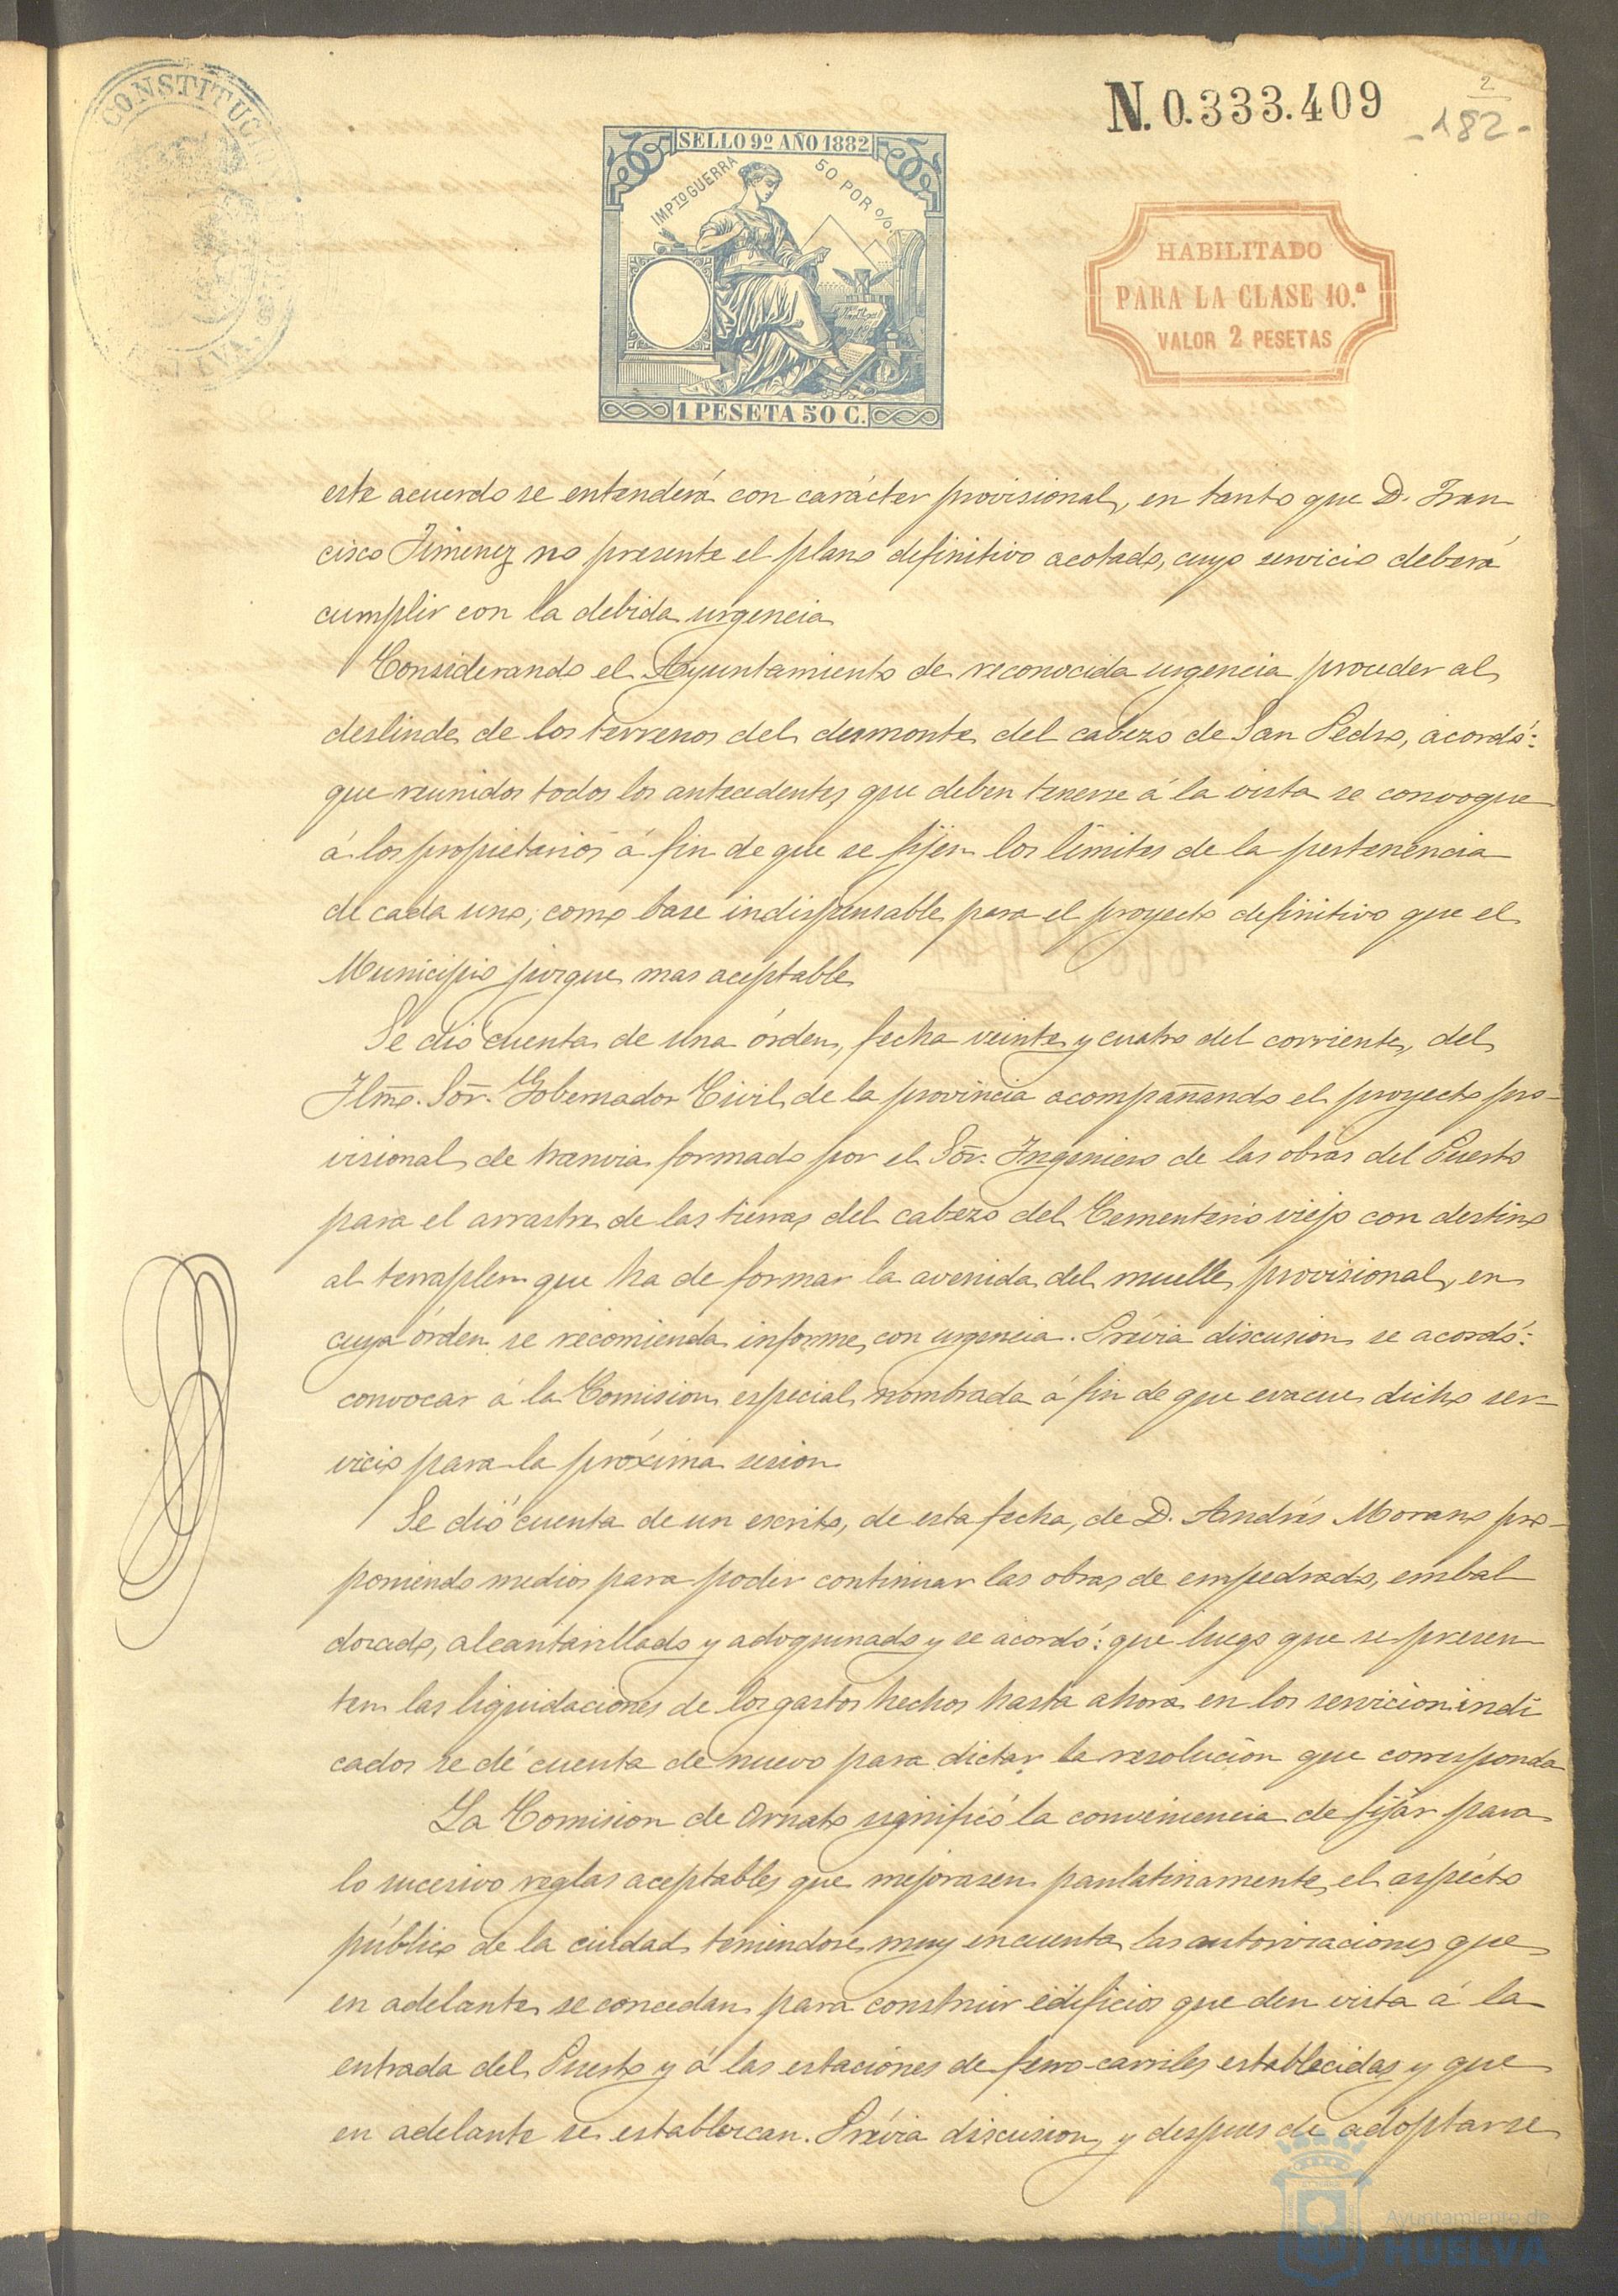 CONSTITUCION
N. 0.333.409
2
-182-
SELLO 9º AÑO 1882
IMPTO GUERRA 50 POR %
1 PESETA 50 C.
HABILITADO
PARA LA CLASE 10.ª
VALOR 2 PESETAS
este acuerdo se entenderá con carácter provisional, en tanto que D. Fran
cisco Jimenez no presente el plano definitivo acotado, cuyo servicio deberá
cumplir con la debida urgencia
Considerando el Ayuntamiento de reconocida urgencia proceder al
deslinde de los terrenos del desmonte del cabezo de San Pedro, acordó:
que reunidos todos los antecedentes que deben tenerse á la vista se convoque
á los propietarios á fin de que se fijen los límites de la pertenencia
de cada uno, como base indispensable para el proyecto definitivo que el
Municipio juzgue mas aceptable
Se dió cuenta de una órden, fecha veinte y cuatro del corriente, del
Ilmo. Sor. Gobernador Civil de la provincia acompañando el proyecto pro-
visional de tranvia formado por el Sor. Ingeniero de las obras del Puerto
para el arrastre de las tierras del cabezo del Cementerio viejo con destino
al terraplen que ha de formar la avenida del muelle provisional, en
cuya órden se recomienda informe con urgencia. Prévia discusion se acordó:
convocar á la Comision especial nombrada á fin de que evacue dicho ser-
vicio para la próxima sesion
Se dió cuenta de un escrito, de esta fecha, de D. Andrés Morano pro-
poniendo medios para poder continuar las obras de empedrado, embal
dosado, alcantarillado y adoquinado y se acordó: que luego que se presen
ten las liquidaciones de los gastos hechos hasta ahora en los servicios indi
cados se dé cuenta de nuevo para dictar la resolucion que corresponda
La Comision de Ornato significó la conveniencia de fijar para
lo sucesivo reglas aceptables que mejorasen paulatinamente el aspécto
público de la ciudad teniendose muy encuenta las autorizaciones que
en adelante se concedan para construir edificios que den vista á la
entrada del Puerto y á las estaciones de ferro-carriles establecidas y que
en adelante se establezcan. Prévia discusion y despues de adoptarse
Ayuntamiento de
HUELVA